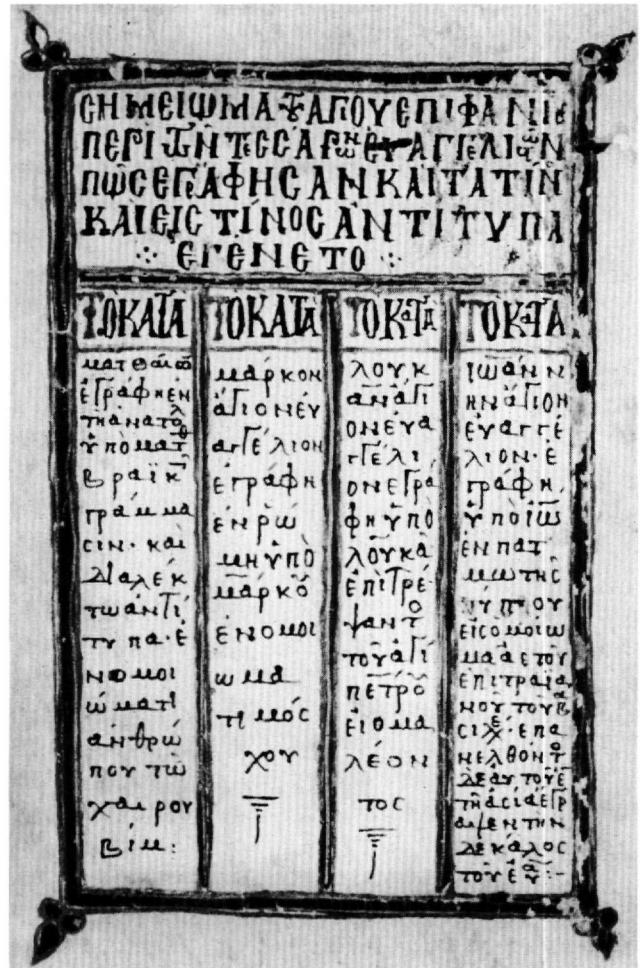 ϹΗΜΕΙΩΜΑ ΑΓΙΟΥ ΕΠΙΦΑΝΙȣ
ΠΕΡΙ ΤΩΝ ΤΕϹϹΑΡΩΝ ΕΥΑΓΓΕΛΙΩΝ
ΠΩϹ ΕΓΡΑΦΗϹΑΝ ΚΑΙ ΤΑ ΤΙΝ
ΚΑΙ ΕΙϹ ΤΙΝΟϹ ΑΝΤΙΤΥΠΑ
ΕΓΕΝΕΤΟ
ΤΟ ΚΑΤΑ
ματθαῖο
ἐγράφη ἐν
τῆ ἀνατολ
ὑπὸ ματθ
βραϊκ
γράμμα
σιν · και
διαλέκ
τω ἀντί
τυπα · ἑ
νομοι
ώματι
ἀνθρώ
που τῶ
χαιρου
βιμ :
ΤΟ ΚΑΤΑ
μάρκον
ἅγιον εὐ
αγγέλιον
ἐγράφη
ἐν ρώ
μη ὑπὸ
μάρκο
ἐνομοι
ωμα
τι μόσ
χου
ΤΟ ΚΑΤΑ
λουκ
αν ἅγι
ον ἐυα
γγέλι
ον εγρα
φη ὑπὸ
λουκᾶ
ἐπιτρέ
ψαντο
τοῦ ἁγί
πέτρο
ἑιομα
λέον
τος
ΤΟ ΚΑΤΑ
ιωάνν
ην ἅγιον
ἐυαγγέ
λιον · ἐ
γράφη
ὑπὸ ἰω
ἐν πατ
μω της
εἰς ομοίω
μα ἀετοῦ
ἐπι τραϊα
νοῦ τοῦ β
σιλε · επα
νελθοντο
δε αυτοῦ ἐ
τῆ ασία εγρ
αψεν την
δεκαλος
τοῦ ευα :-